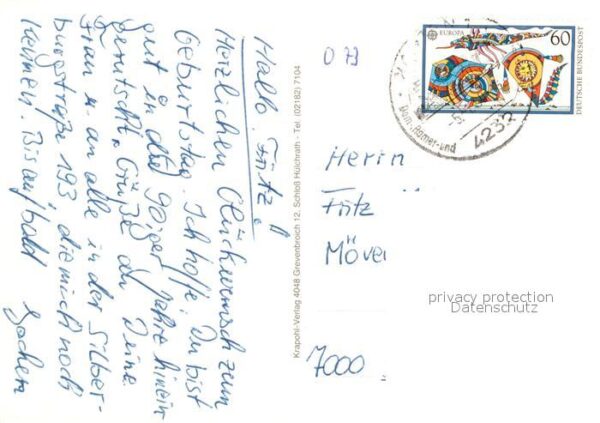 Hallo Fritz!
Herzlichen Glückwunsch zum
Geburtstag. Ich hoffe, Du bist
gut in die 90iger Jahre hinein
gerutscht. Grüße an Deine
Frau u. an alle in der Silber-
burgstraße 193, die mich noch
kennen. Bis auf bald Jochen
Krapohl-Verlag 4048 Grevenbroich 12, Schloß Hülchrath - Tel. (02182) 7104
D 73
EUROPA 60
DEUTSCHE BUNDESPOST
Dom-, Römer- und
4232
Herrn
Fritz
Möve
7000
privacy protection
Datenschutz